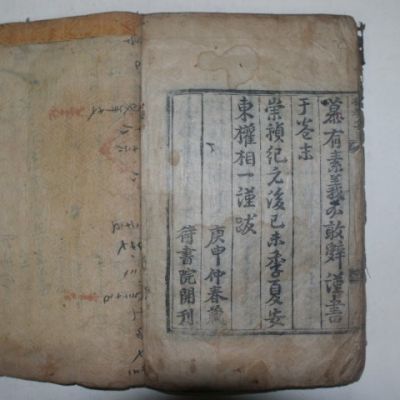 慕有素義不敢辭謹書
于卷末
崇禎紀元後己未季夏安
東權相一謹跋
庚申仲春
書院開刊